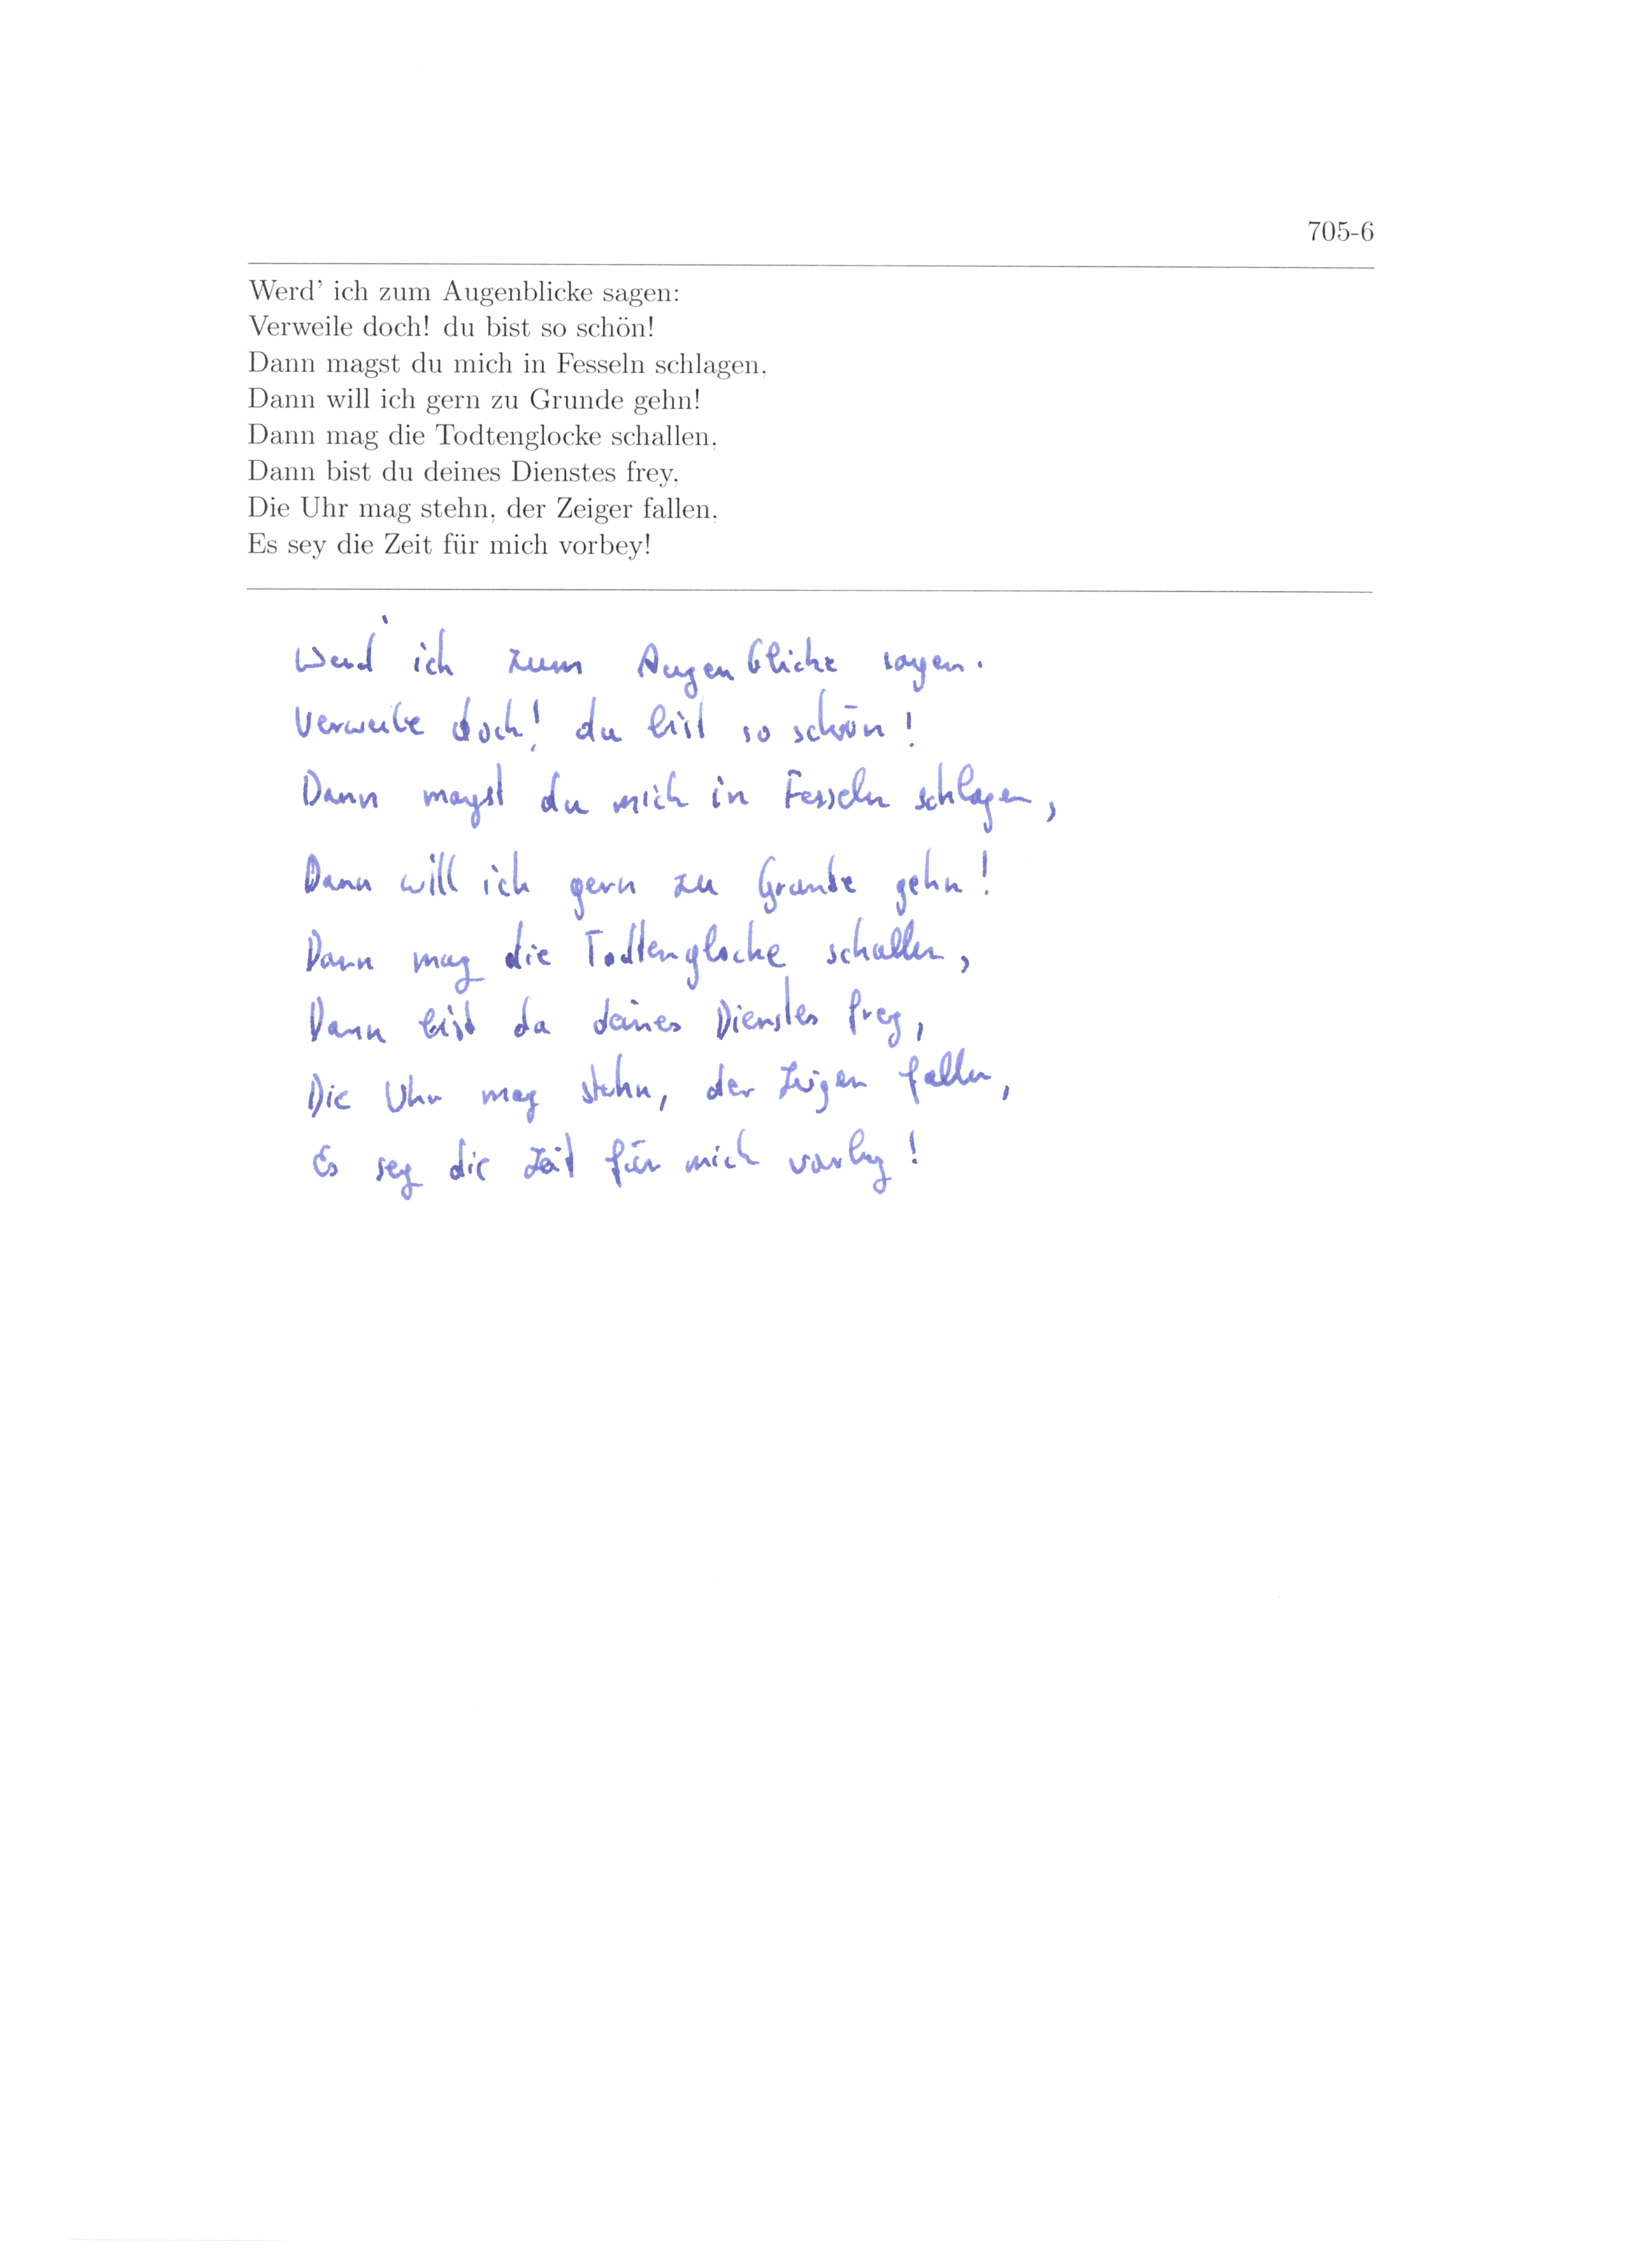 705-6
Werd' ich zum Augenblicke sagen:
Verweile doch! du bist so schön!
Dann magst du mich in Fesseln schlagen,
Dann will ich gern zu Grunde gehn!
Dann mag die Todtenglocke schallen,
Dann bist du deines Dienstes frey,
Die Uhr mag stehn, der Zeiger fallen,
Es sey die Zeit für mich vorbey!
Werd' ich zum Augenblicke sagen.
Verweile doch! du bist so schön!
Dann magst du mich in Fesseln schlagen,
Dann will ich gern zu Grunde gehn!
Dann mag die Todtenglocke schallen,
Dann bist da deines Dienstes frey,
Die Uhr mag stehn, der Zeigen fallen,
Es sey die Zeit für mich vorbey!